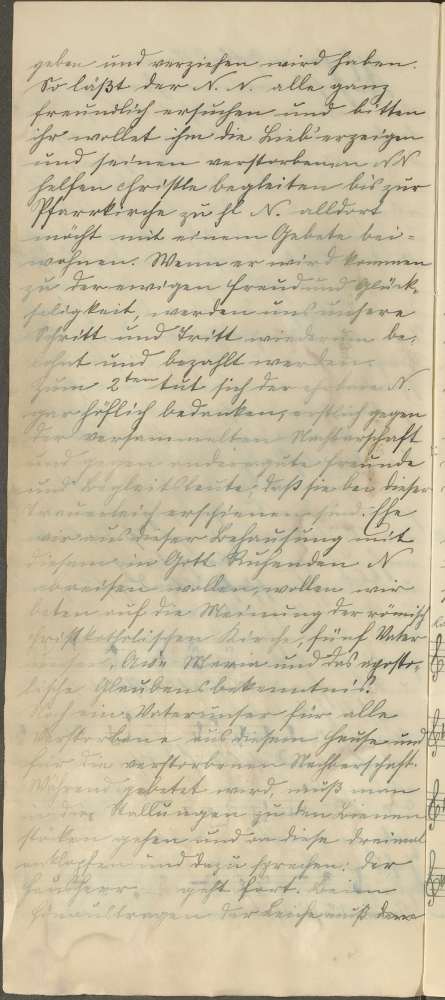 geben und verziehen wird haben.
So läßt der N. N. alle ganz
freundlich ersuchen und bitten
ihr wollet ihm die Lieb erzeigen
und seinen verstorbenen NN
helfen christle begleiten bis zur
Pfarrkirche zu hl N. alldort
möcht mit einem Gebete bei=
wohnen. Wenn er wird kommen
zu der ewigen Freud und Glück=
seligkeit, werden uns unsere
Schritt und Tritt wiederum be=
lohnt und bezahlt werden.
Zum 2ten tut sich der ehrbare N.
gar höflich bedanken, erstlich gegen
der versammelten Nachbarschaft
und gegen andere gute Freunde
und Begleitsleute, daß sie bei dieser
Trauerleich erschienen sind. Ehe
wir aus dieser Behausung mit
diesem in Gott Ruhenden N
abreisen wollen, wollen wir
beten auf die Meinung der römisch
christkatholischen Kirche, fünf Vater
unser, Ave Maria und das aposto=
lische Glaubensbekenntnis.
Noch ein Vaterunser für alle
Verstorbene aus diesem Hause und
für die verstorbenen Nachbarschaft.
Während gebetet werd, muß man
in den Stallungen zu den Bienen
stöcken gehen und an diese dreimal
anklopfen und dazu sprechen: Der
Hausherr geht fort. Beim
Hinaustragen der Leiche muß